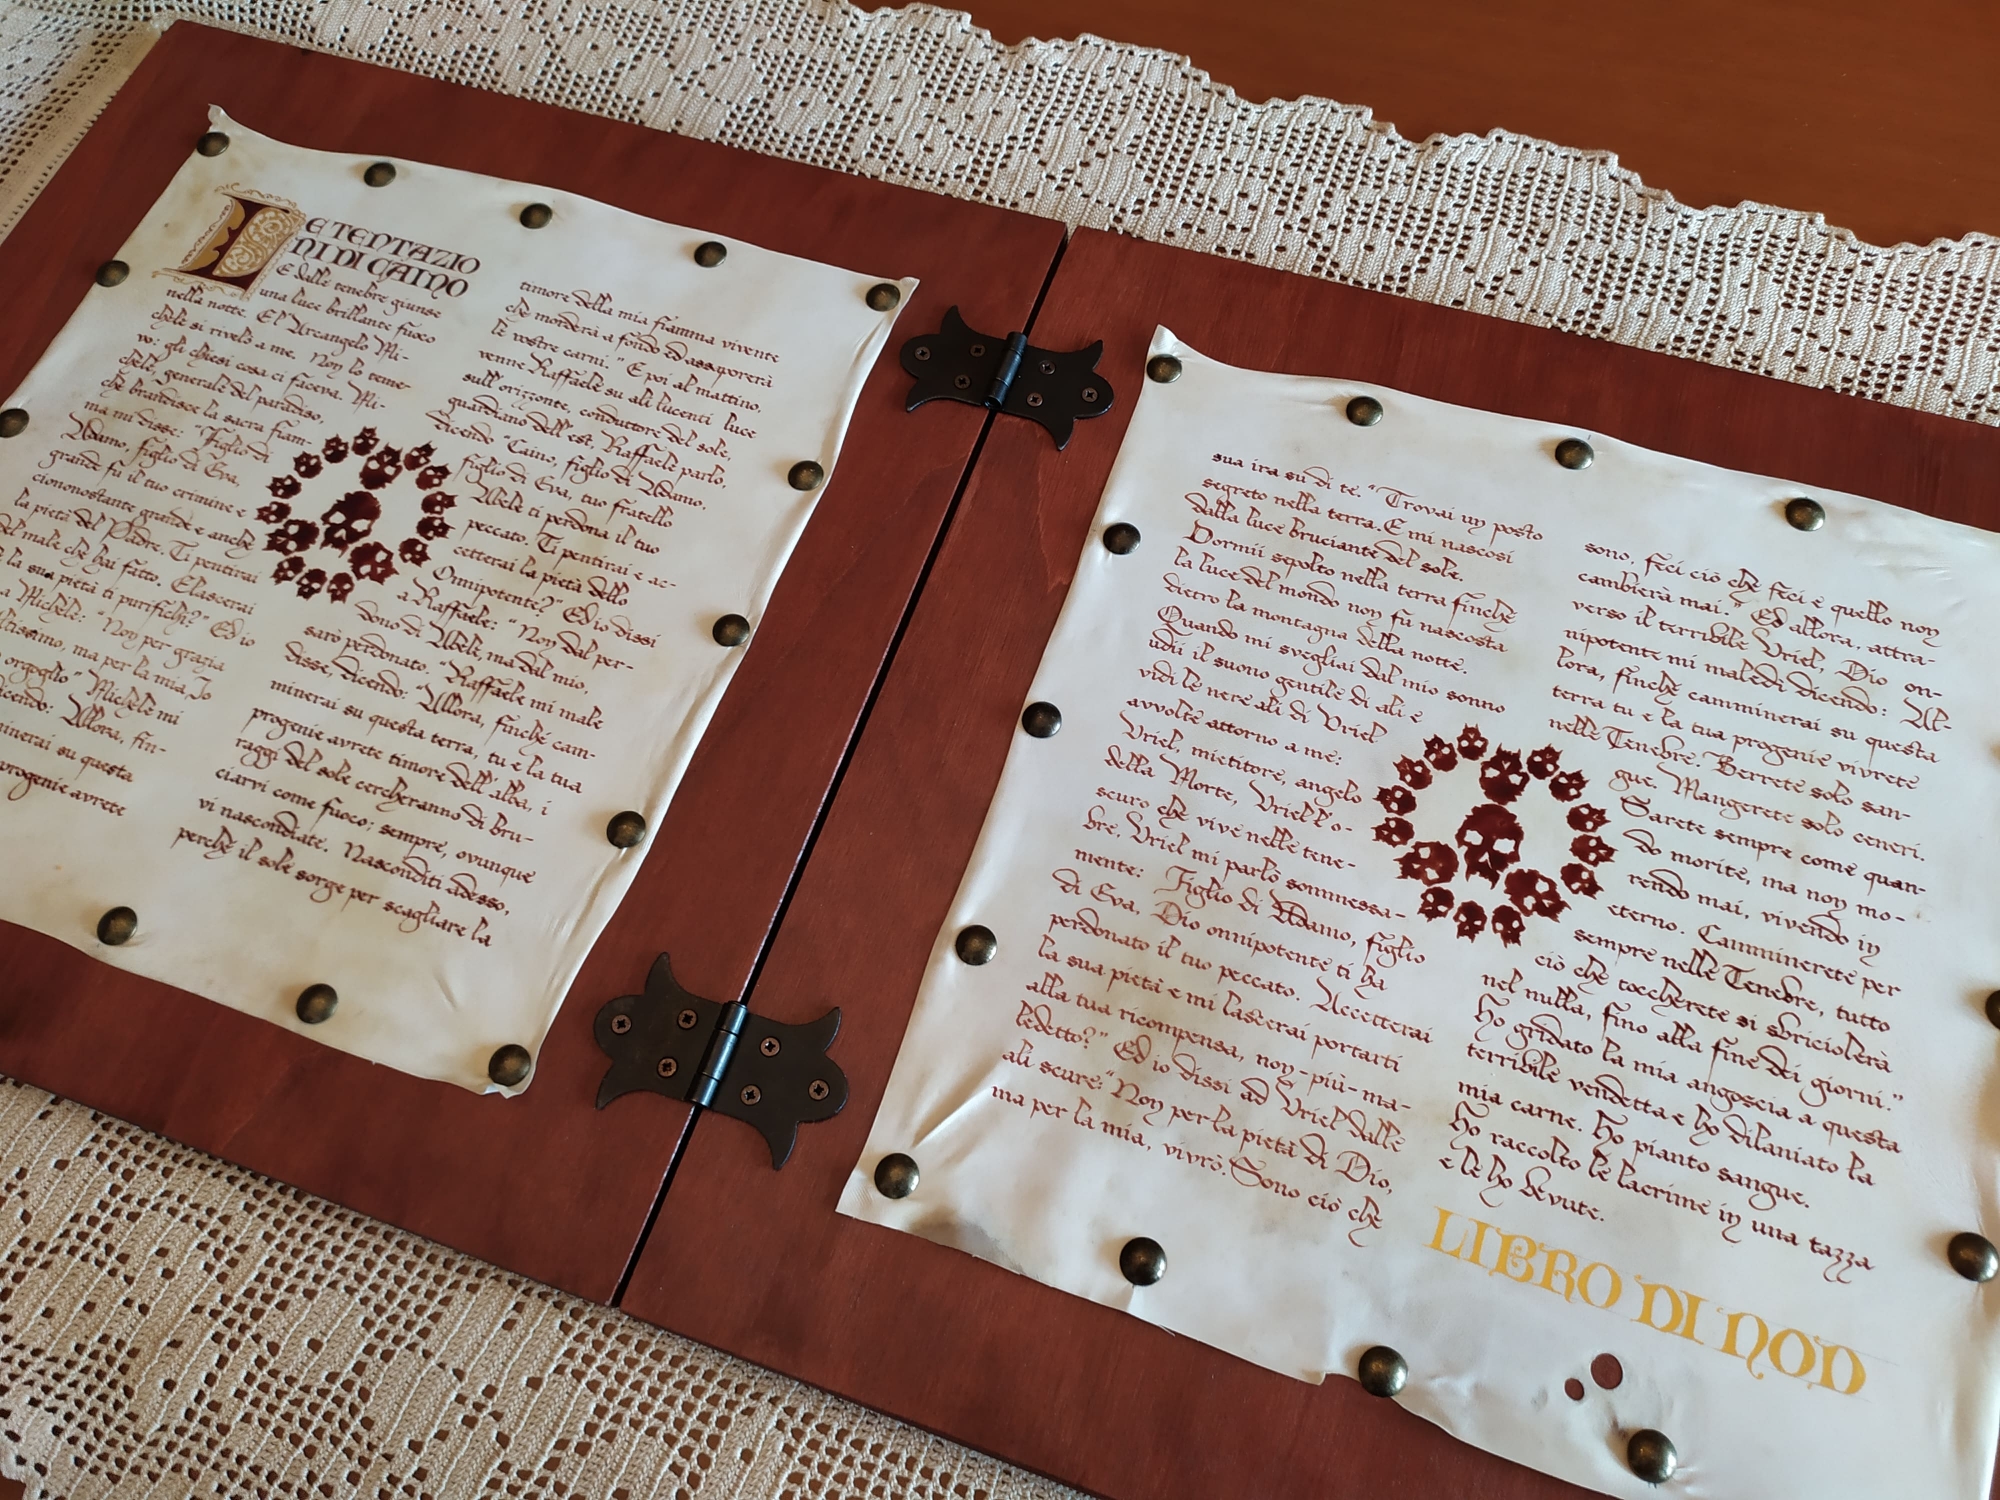 LE TENTAZIO
NI DI CAINO
E dalle tenebre giunse
una luce brillante fuoco
nella notte. E l'Arcangelo Mi-
chele si rivelò a me. Non lo teme-
vo: gli chiesi cosa ci faceva. Mi-
chele, generale del paradiso,
che brandisce la sacra fiam-
ma mi disse: "Figlio di
Adamo, figlio di Eva,
grande fu il tuo crimine e
ciononostante grande e anche
la pietà del Padre. Ti pentirai
del male che hai fatto. E lascerai
la sua pietà ti purifichi?" Ed io
a Michele: "Non per grazia
ltissimo, ma per la mia, Io
orgoglio" Michele mi
icendo: Allora, fin-
minerai su questa
progenie avrete
timore della mia fiamma vivente
che morderà a fondo ed assaporerà
le vostre carni." E poi al mattino,
venne Raffaele su ali lucenti luce
sull'orizzonte, conduttore del sole,
guardiano dell'est, Raffaele parlò,
dicendo "Caino, figlio di Adamo,
figlio di Eva, tuo fratello
Abele ti perdona il tuo
peccato. Ti pentirai e ac-
cetterai la pietà dello
Onnipotente?" Ed io dissi
a Raffaele: "Non dal per-
dono di Abele, ma dal mio,
sarò perdonato. "Raffaele mi male
disse, dicendo: "Allora, finché cam-
minerai su questa terra, tu e la tua
progenie avrete timore dell'alba, i
raggi del sole cercheranno di bru-
ciarvi come fuoco; sempre, ovunque
vi nascondiate. Nasconditi adesso,
perché il sole sorge per scagliare la
sua ira su di te." Trovai un posto
segreto nella terra. E mi nascosi
dalla luce bruciante del sole.
Dormii sepolto nella terra finché
la luce del mondo non fu nascosta
dietro la montagna della notte.
Quando mi svegliai dal mio sonno
udii il suono gentile di ali e
vidi le nere ali di Uriel
avvolte attorno a me:
Uriel, mietitore, angelo
della Morte, Uriel l'o-
scuro che vive nelle tene-
bre, Uriel mi parlò sommessa-
mente: Figlio di Adamo, figlio
di Eva, Dio onnipotente ti ha
perdonato il tuo peccato. Accetterai
la sua pietà e mi lascerai portarti
alla tua ricompensa, non-più-ma-
ledetto?" Ed io dissi ad Uriel dalle
ali scure: "Non per la pietà di Dio,
ma per la mia, vivrò. Sono ciò che
sono, feci ciò che feci e quello non
cambierà mai." Ed allora, attra-
verso il terribile Uriel, Dio on-
nipotente mi maledì dicendo: Al-
lora, finché camminerai su questa
terra tu e la tua progenie vivrete
nelle Tenebre: Berrete solo san-
gue. Mangerete solo ceneri.
Sarete sempre come quan-
do morite, ma non mo-
rendo mai, vivendo in
eterno. Camminerete per
sempre nelle Tenebre, tutto
ciò che toccherete si sbriciolerà
nel nulla, fino alla fine dei giorni."
Ho gridato la mia angoscia a questa
terribile vendetta e ho dilaniato la
mia carne. Ho pianto sangue.
Ho raccolto le lacrime in una tazza
e le ho bevute.
LIBRO DI NOD